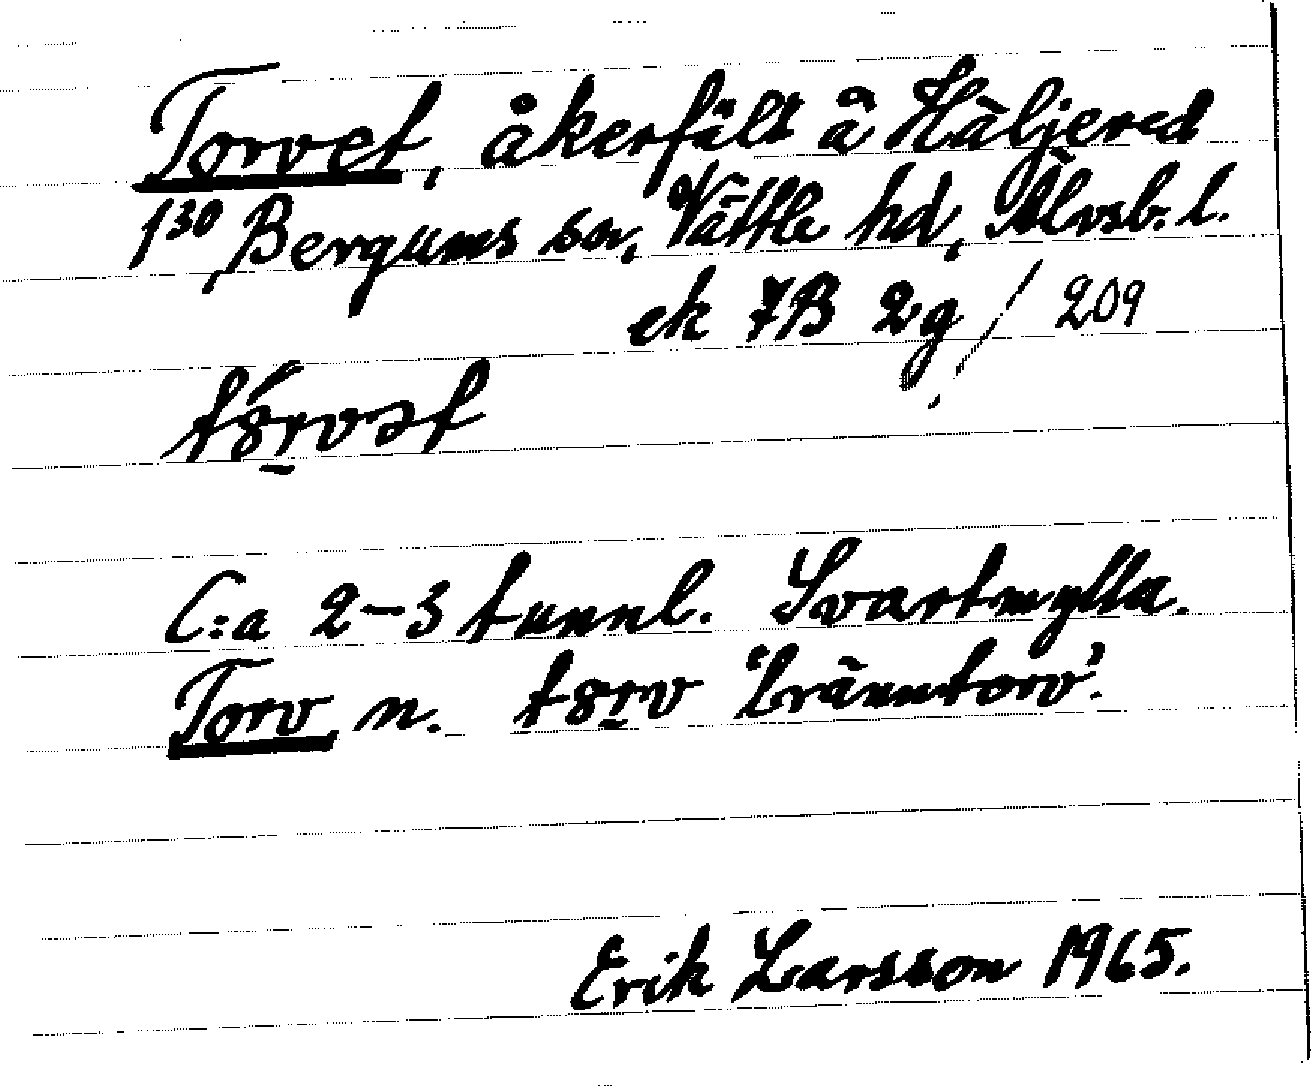 Torvet, åkerfält å Häljered
1³⁰, Bergums sn, Vättle hd, Älvsb. l.
ek 7B 2g / 209
C:a 2-3 tunnl. Svartmylla.
Torv n. 'bränntorv'.
Erik Larsson 1965.